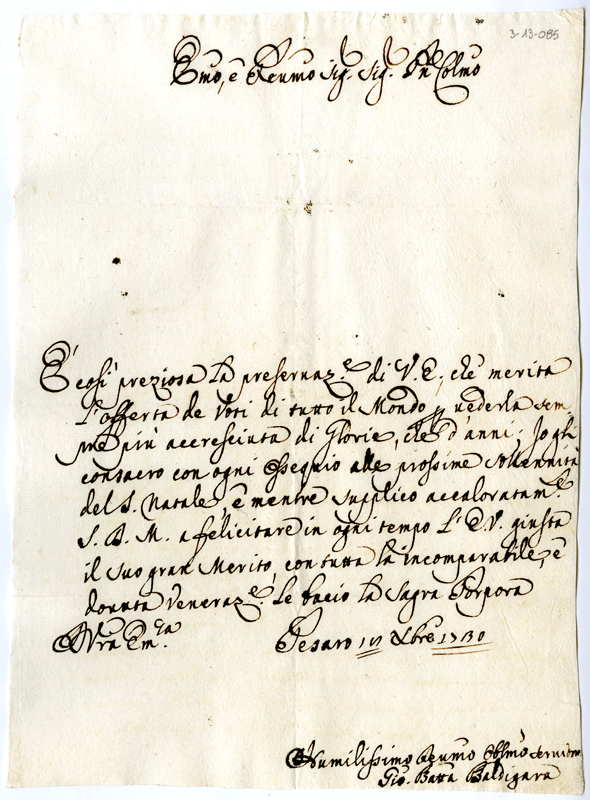 3-13-085
Emo, e Reumo Sig. Sig. Pn Colmo
E' così preziosa la preseruaz.e di V.E., che merita
l'offerta de Voti di tutto il Mondo p uederla sem-
pre più accresciuta di Glorie, che d'anni; Io gli
consacro con ogni Ossequio alle prossime solennità
del S. Natale, e mentre supplico accaloratam.e
S. D. M. a felicitare in ogni tempo l'E.V. giusta
il suo gran Merito, con tutta la incomparabile, e
douuta Veneraz.e le bacio la Sagra Porpora
Vra Em.za
Pesaro Xbre 1730
Humilissimo Deumo Obblmo seruitor
Gio. Batta Baldigara